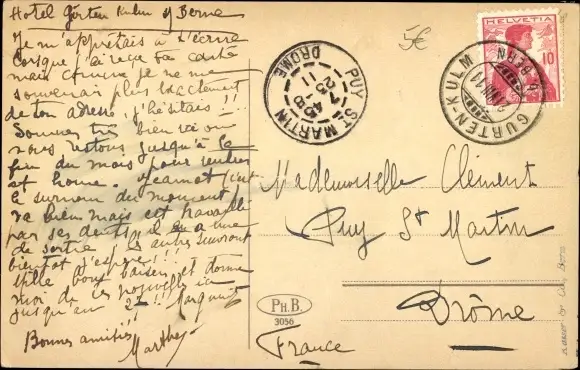 Hotel Gürten Kulm s/ Berne
Je m'apprêtais à t'écrire
lorsque j'ai reçu ta carte
mais comme je ne me
souvenais plus exactement
de ton adresse, j'hésitais!!
Sommes très bien ici où
nous restons jusqu'à la
fin du mois pour rentrer
at home. Jeannot (c'est
le surnom du moment)
va bien mais est travaillé
par ses dents, il en a une
de sortie, les autres suivront
bientôt j'espère!!!
bons baisers et donne
moi de tes nouvelles ici
jusqu'au
Bonnes amitiés!!
Marthe
5€
PUY ST MARTIN
DROME
HELVETIA
10
GURTEN-KULM
BERN
Mademoiselle Clément
Puy St Martin
Drôme
France
PH.B.
3056